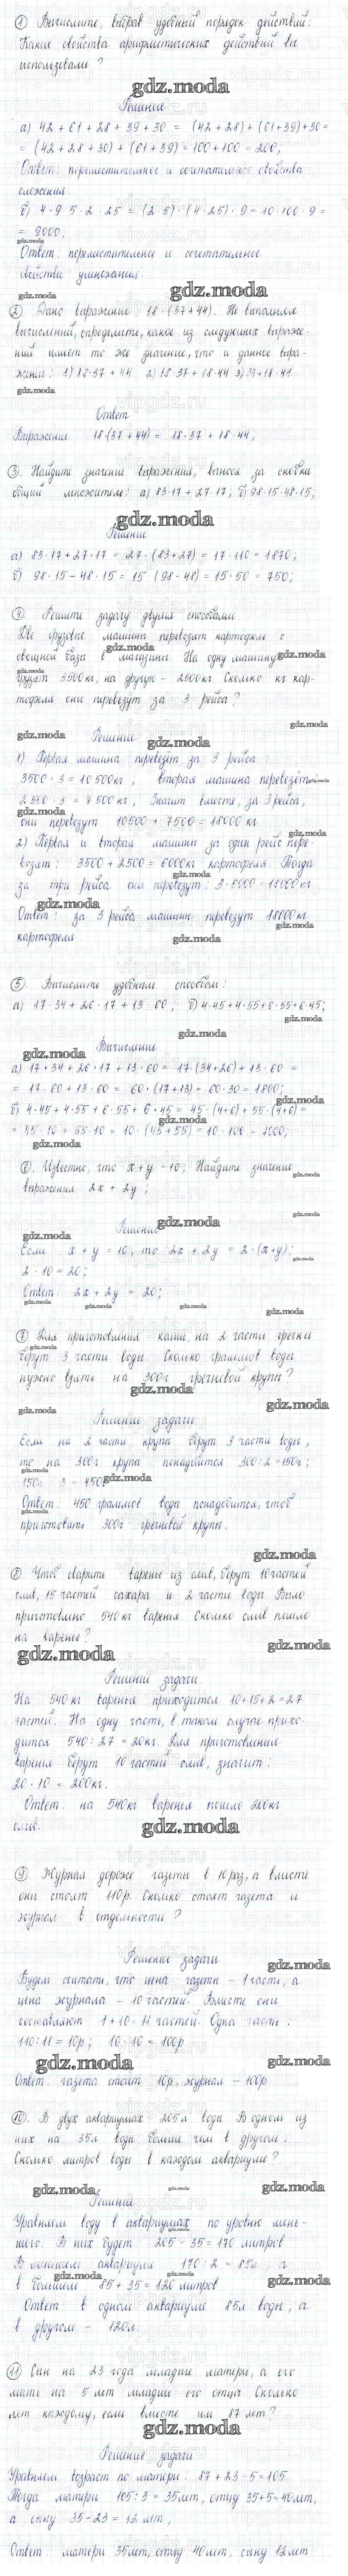 1 Вычислите, выбрав удобный порядок действий.
Какие свойства арифметических действий вы
использовали?
gdz.moda
Решение
а) 42 + 61 + 28 + 39 + 30 = (42 + 28) + (61 + 39) + 30 =
= (42 + 28 + 30) + (61 + 39) = 100 + 100 = 200;
Ответ: переместительное и сочетательное свойства
сложения.
б) 4 · 9 · 5 · 2 · 25 = (2 · 5) · (4 · 25) · 9 = 10 · 100 · 9 =
= 9000;
Ответ: переместительное и сочетательное
свойства умножения.
gdz.moda
2 Дано выражение 18 · (37 + 44). Не выполняя
вычислений, определите, какое из следующих выраже-
ний имеет то же значение, что и данное выра-
жение: 1) 18·37 + 44 2) 18·37 + 18·44 3)
gdz.moda
Ответ
Выражение 18·(37 + 44) = 18·37 + 18·44;
3. Найдите значение выражения, вынося за скобки
общий множитель: а) 83·17 + 27·17; б) 98·15 - 48·15;
gdz.moda
Решение
а) 83·17 + 27·17 = 27·(83 + 27) = 17·110 = 1870;
б) 98·15 - 48·15 = 15 (98 - 48) = 15·50 = 750;
4 Решите задачу двумя способами
Две грузовые машины перевозят картофель с
овощной базы в магазины. На одну машину
грузят 3500 кг, на другую - 2500 кг. Сколько кг кар-
тофеля они перевезут за 3 рейса?
gdz.moda
Решение
1) Первая машина перевезёт за 3 рейса:
3500 · 3 = 10500 кг; вторая машина перевезёт
2500 · 3 = 7500 кг, Значит вместе, за 3 рейса,
они перевезут 10500 + 7500 = 18000 кг
2) Первая и вторая машины за один рейс пере-
возят: 3500 + 2500 = 6000 кг картофеля. Тогда
за три рейса они перевезут: 3·6000 = 18000 кг
Ответ: за 3 рейса машины перевезут 18000 кг
картофеля.
gdz.moda
5. Вычислите удобным способом:
а) 17·34 + 26·17 + 13·60; б) 4·45 + 4·55 + 6·55 + 6·45;
gdz.moda
Вычисление
а) 17·34 + 26·17 + 13·60 = 17·(34 + 26) + 13·60 =
= 17·60 + 13·60 = 60·(17 + 13) = 60·30 = 1800;
б) 4·45 + 4·55 + 6·55 + 6·45 = 45·(4+6) + 55·(4+6) =
= 45·10 + 55·10 = 10·(45 + 55) = 10·100 = 1000;
gdz.moda
6. Известно, что x + y = 10; Найдите значение
выражения 2x + 2y;
Решение
gdz.moda
Если x + y = 10, то 2x + 2y = 2·(x + y);
2·10 = 20;
Ответ: 2x + 2y = 20;
gdz.moda
7 Для приготовления каши на 2 части гречки
берут 3 части воды. Сколько граммов воды
нужно взять на 300г гречневой крупы?
gdz.moda
Решение задачи
Если на 2 части крупы берут 3 части воды,
то на 300г крупы понадобится 300:2 = 150г;
150г · 3 = 450г
Ответ: 450 граммов воды понадобится, чтоб
приготовить 300г гречневой крупы.
gdz.moda
8 Чтоб сварить варенье из слив, берут 10 частей
слив, 15 частей сахара и 2 части воды. Было
приготовлено 540 кг варенья. Сколько слив пошло
на варенье?
gdz.moda
Решение задачи.
На 540 кг варенья приходится 10+15+2=27
частей. На одну часть, в таком случае прихо-
дится 540 : 27 = 20 кг. Для приготовления
варенья берут 10 частей слив, значит:
20 · 10 = 200 кг.
Ответ: на 540 кг варенья пошло 200 кг
слив.
gdz.moda
9 Журнал дороже газеты в 10 раз, а вместе
они стоят 110р. Сколько стоят газета и
журнал в отдельности?
Решение задачи
gdz.moda
Будем считать, что цена газеты - 1 часть, а
цена журнала - 10 частей. Вместе они
составляют 1 + 10 = 11 частей. Одна часть:
110 : 11 = 10р; 10 · 10 = 100р
gdz.moda
Ответ: газета стоит 10р, журнал - 100р
10. В двух аквариумах 205л воды. В одном из
них на 35л воды больше чем в другом.
Сколько литров воды в каждом аквариуме?
gdz.moda
Решение
Уравняем воду в аквариумах по уровню мень-
шего. В них будет 205 - 35 = 170 литров
В меньшем аквариуме 170 : 2 = 85л, а
в большем 85 + 35 = 120 литров
Ответ: в одном аквариуме 85л воды, а
в другом - 120л.
gdz.moda
11 Сын на 23 года младше матери, а его
мать на 5 лет младше его отца. Сколько
лет каждому, если вместе им 87 лет?
gdz.moda
Решение задачи
Уравняем возраст по матери: 87 + 23 - 5 = 105.
Тогда матери 105 : 3 = 35 лет, отцу 35+5=40лет,
а сыну 35 - 23 = 12 лет;
Ответ: матери 35лет, отцу 40лет, сыну 12лет